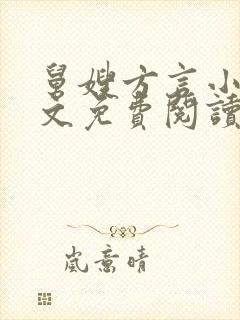 舅嫂方言小
文免費閱讀
嵐意晴